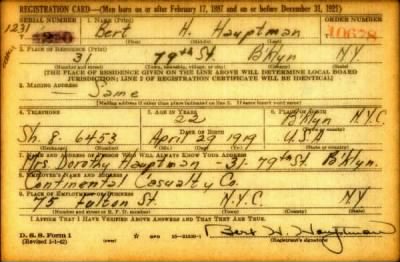 REGISTRATION CARD—(Men born on or after February 17, 1897 and on or before December 31, 1921)
SERIAL NUMBER 1. NAME (Print) ORDER NUMBER
1231 Bert H. Hauptman 10678
2. PLACE OF RESIDENCE (Print)
31 79th St. B'klyn NY
(Number and street) (Town, township, village, or city) (County) (State)
[THE PLACE OF RESIDENCE GIVEN ON THE LINE ABOVE WILL DETERMINE LOCAL BOARD
JURISDICTION; LINE 2 OF REGISTRATION CERTIFICATE WILL BE IDENTICAL]
3. MAILING ADDRESS
Same
[Mailing address if other than place indicated on line 2. If same insert word same]
4. TELEPHONE 5. AGE IN YEARS 6. PLACE OF BIRTH
22 B'klyn N.Y.C.
DATE OF BIRTH
Sh. 8-6453 April 29 1919 USA
7. NAME AND ADDRESS OF PERSON WHO WILL ALWAYS KNOW YOUR ADDRESS
Mrs Dorothy Hauptman - 31 79th St. B'klyn.
8. EMPLOYER'S NAME AND ADDRESS
Continental Casualty Co.
9. PLACE OF EMPLOYMENT OR BUSINESS
75 Fulton St. N.Y.C. NY
(Number and street or R. F. D. number) (Town) (County) (State)
I AFFIRM THAT I HAVE VERIFIED ABOVE ANSWERS AND THAT THEY ARE TRUE.
D. S. S. Form 1
(Revised 1-1-42) GPO Bert H. Hauptman
(Registrant's signature)